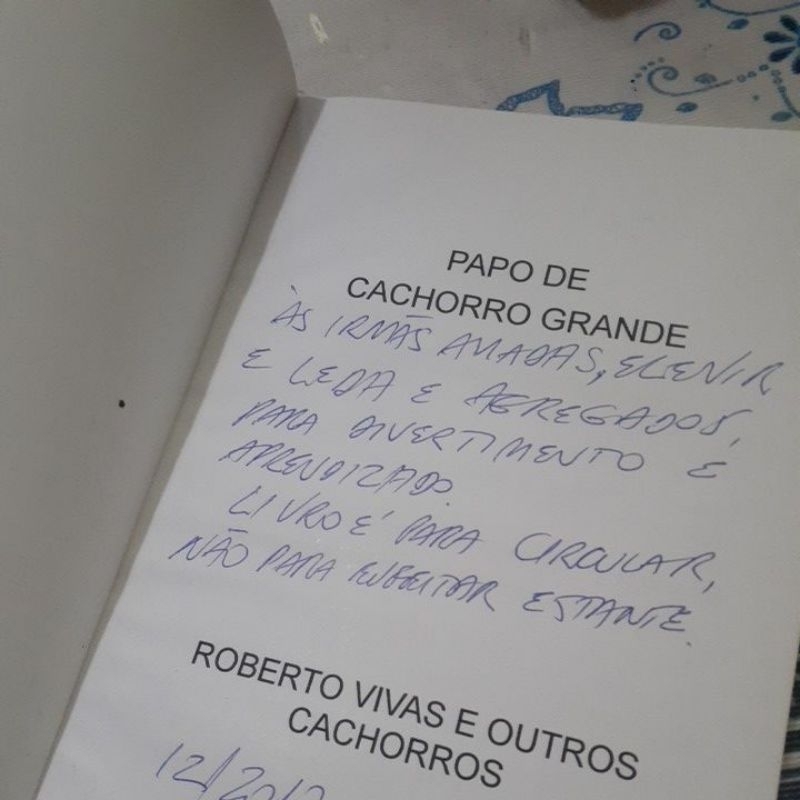 PAPO DE
CACHORRO GRANDE
ÀS IRMÃS AMADAS, ELENIR
E LEDA E AGREGADOS,
PARA DIVERTIMENTO E
APRENDIZADO.
LIVRO É PARA CIRCULAR,
NÃO PARA ENFEITAR ESTANTE.
ROBERTO VIVAS E OUTROS
CACHORROS
12/